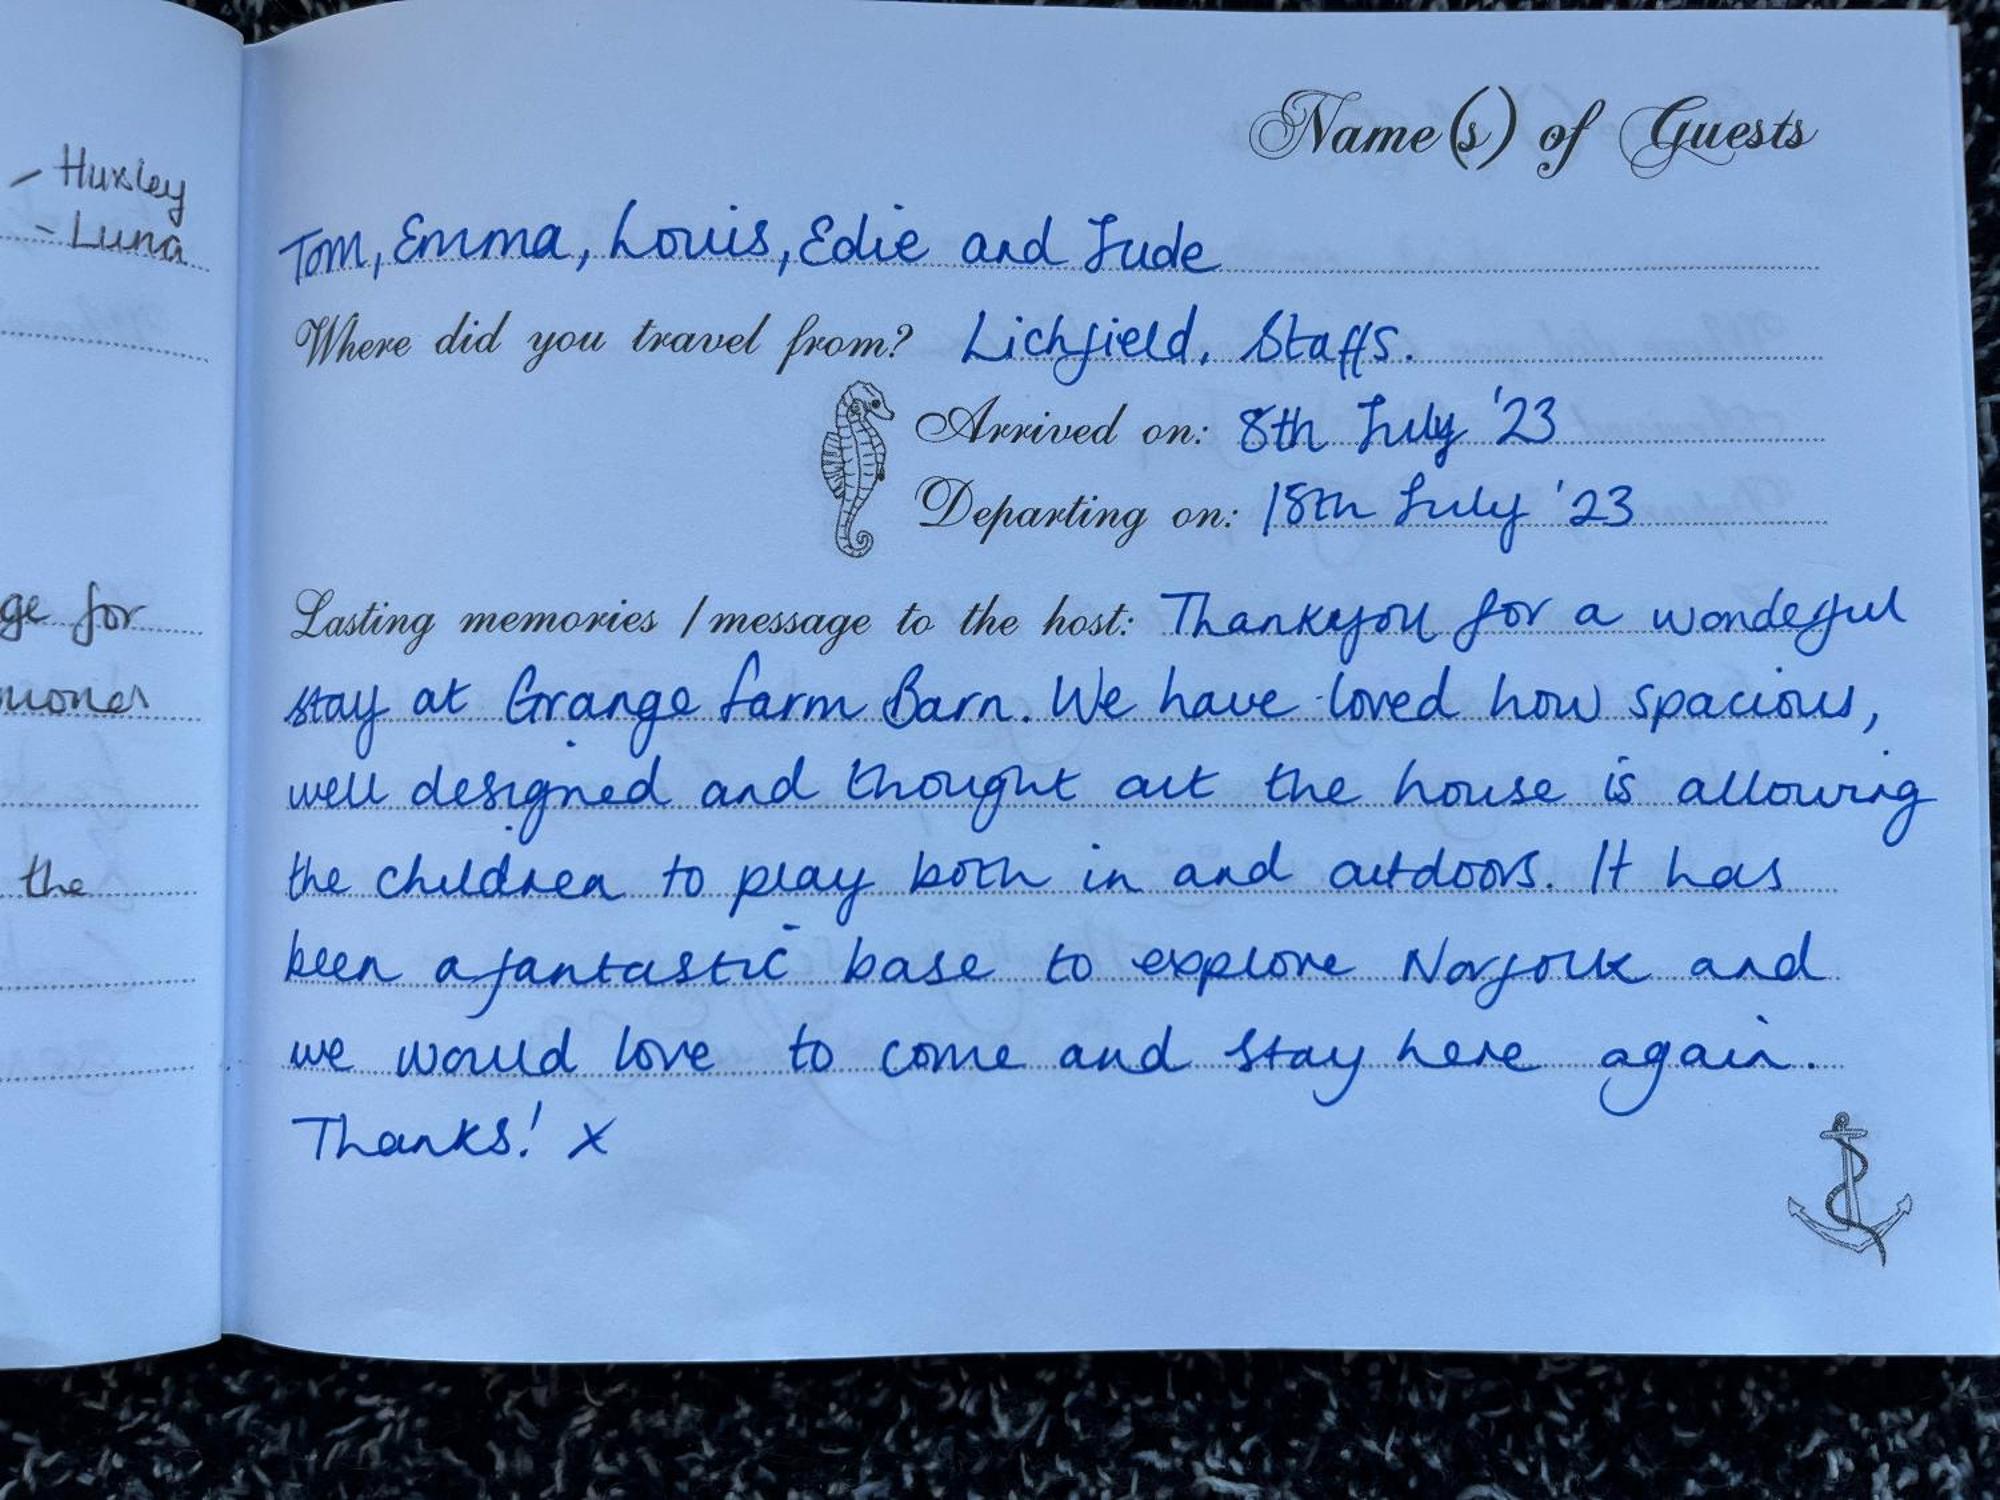 - Huxley
- Luna
ge for
the
Name(s) of Guests
Tom, Emma, Louis, Edie and Jude
Where did you travel from? Lichfield, Staffs.
Arrived on: 8th July '23
Departing on: 18th July '23
Lasting memories / message to the host: Thankyou for a wonderful
stay at Grange Farm Barn. We have loved how spacious,
well designed and thought out the house is allowing
the children to play both in and outdoors. It has
been a fantastic base to explore Norfolk and
we would love to come and stay here again.
Thanks! x